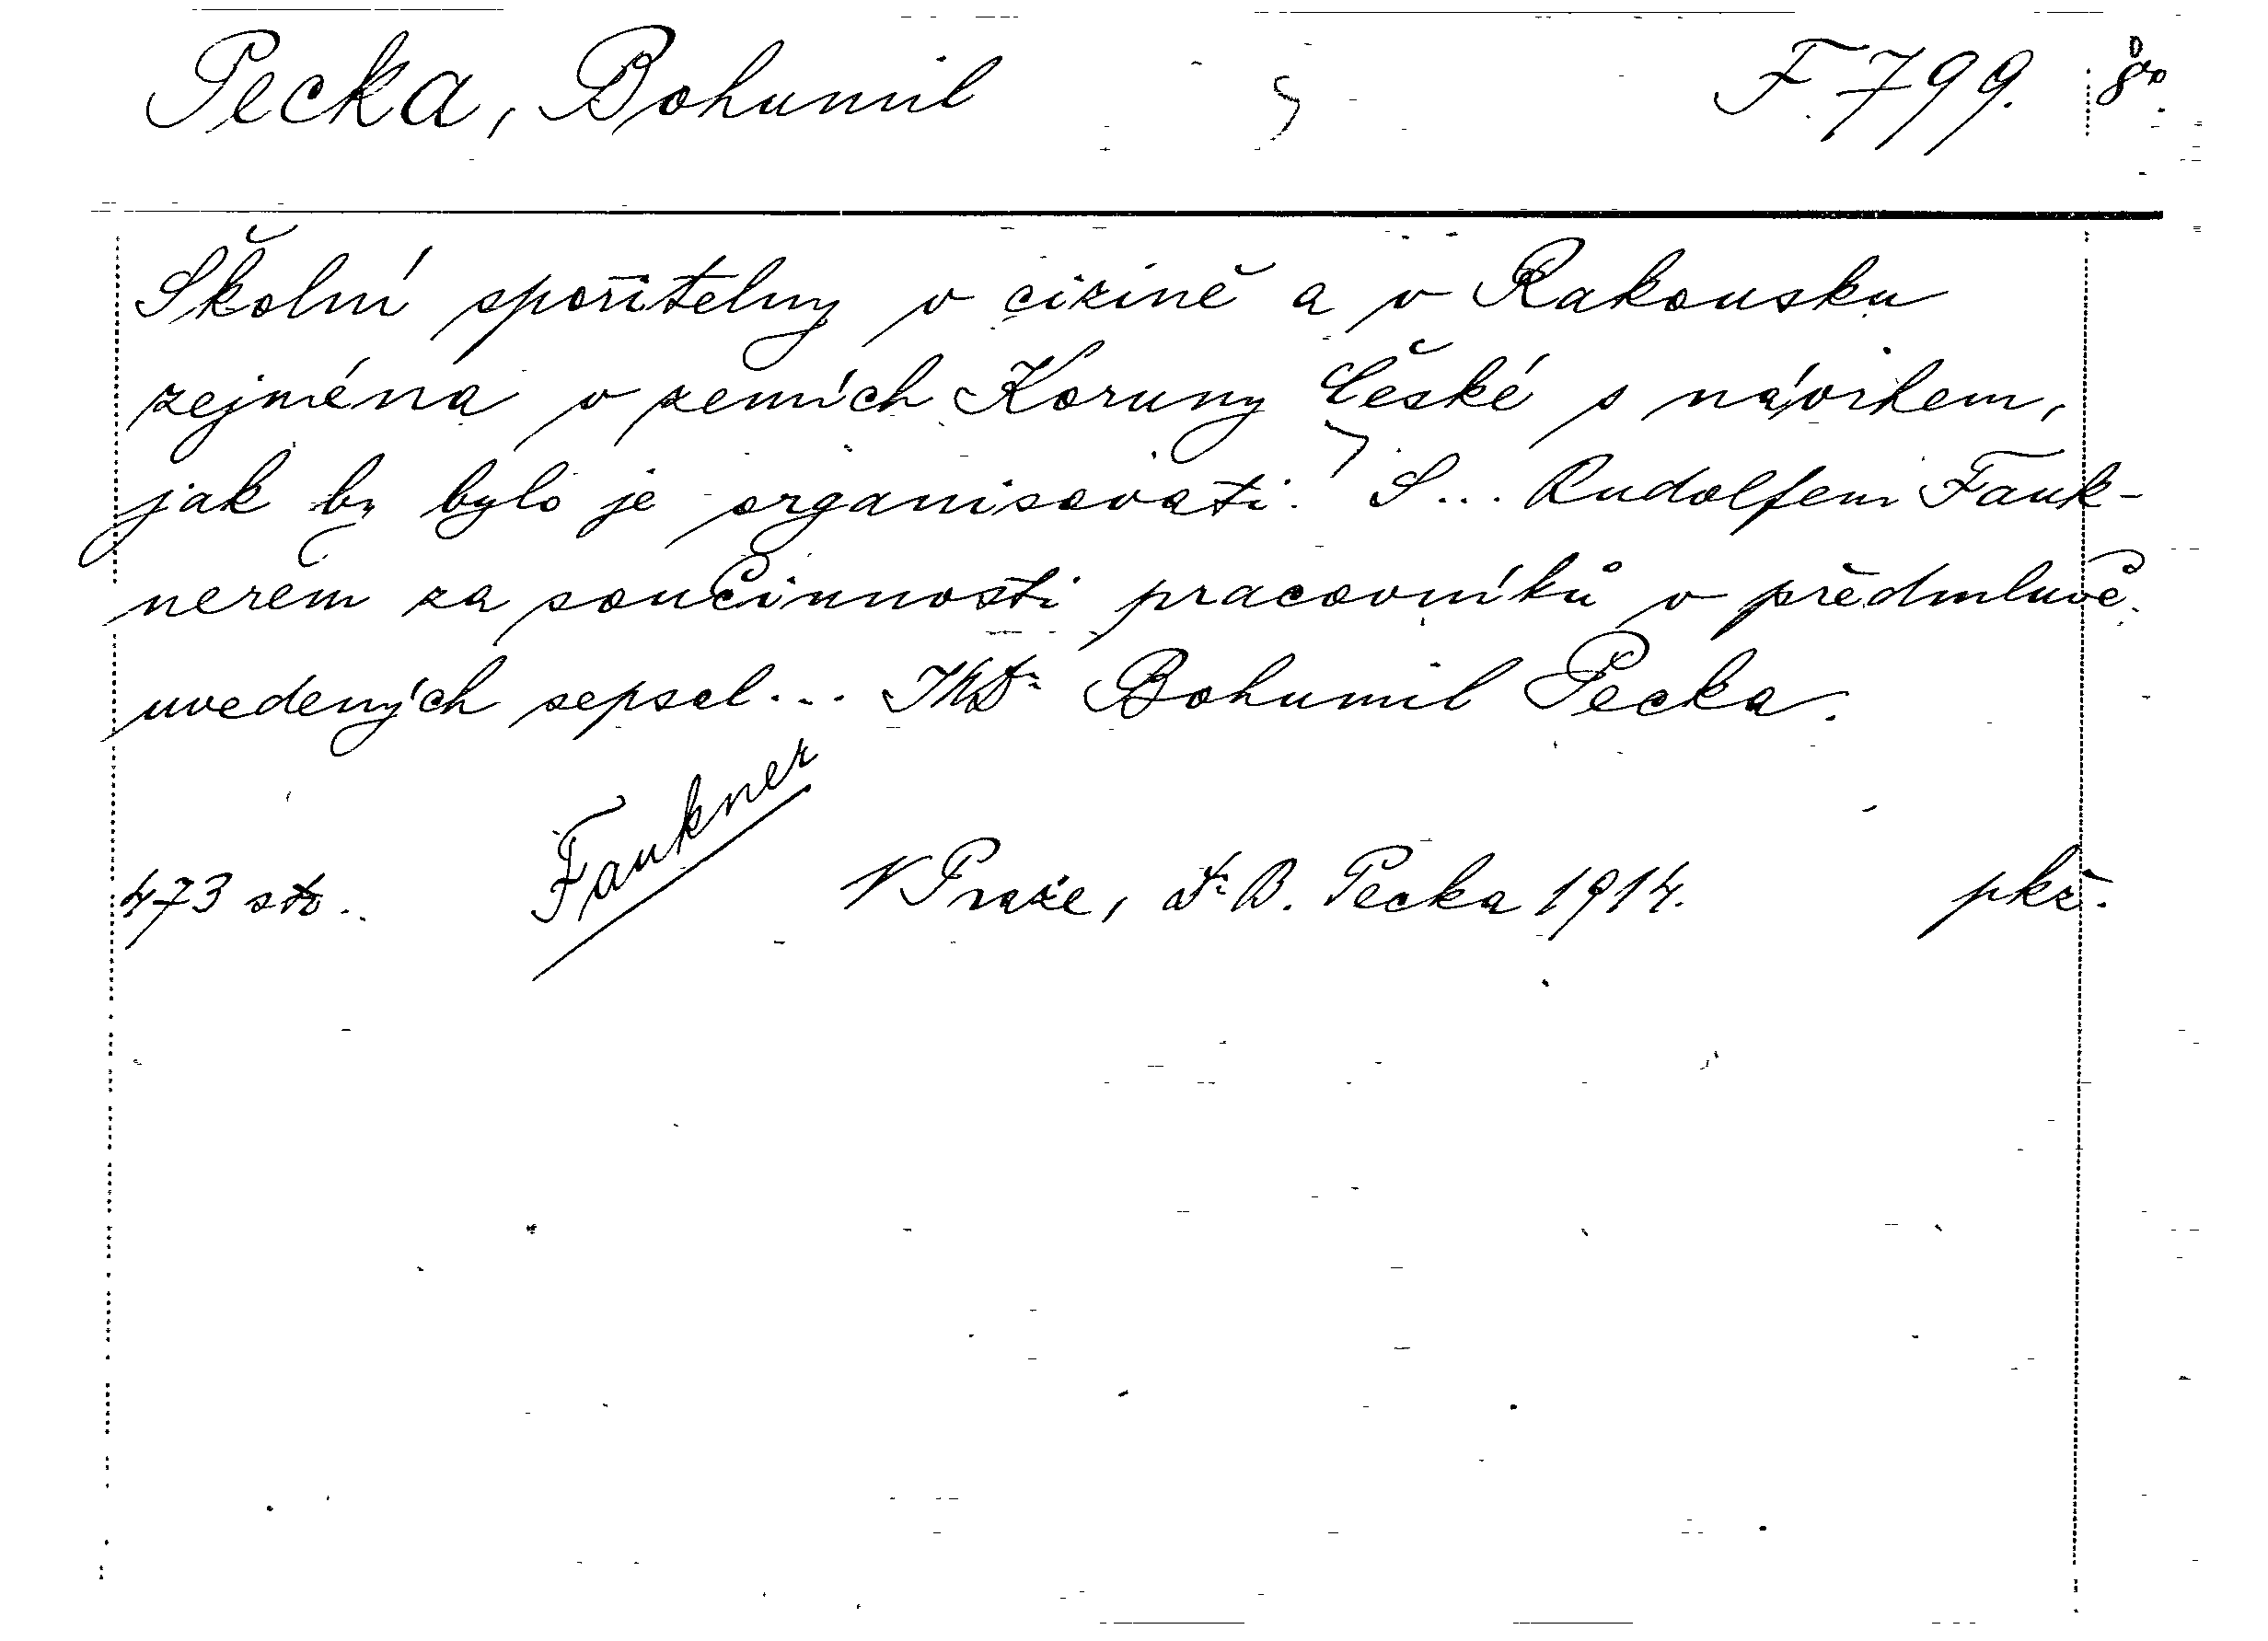 Pecka, Bohumil F. 799. 8°
Školní spořitelny v cizině a v Rakousku
zejména v zemích Koruny České s návrhem,
jak by bylo je organisovati. S... Rudolfem Fauk-
nerem za součinnosti pracovníků v předmluvě
uvedených sepsal... JUDr Bohumil Pecka.
Faukner
473 str. V Praze, Dr B. Pecka 1914. pkž.